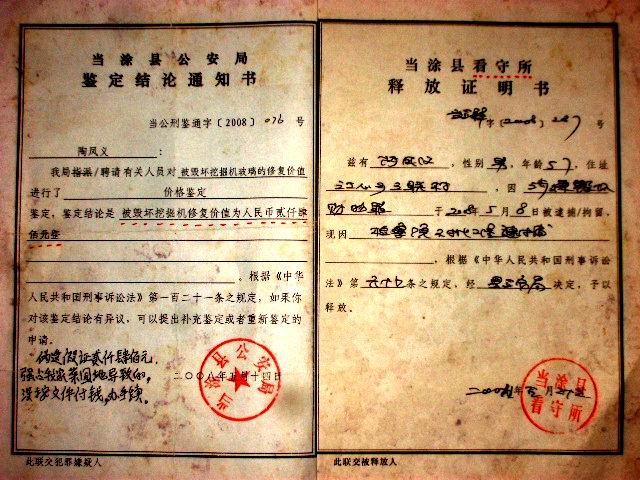 当涂县公安局
鉴定结论通知书
当公刑鉴通字〔2008〕076 号
陶凤义：
我局指派/聘请有关人员对 被毁坏挖掘机玻璃的修复价值
进行了 价格鉴定
鉴定，鉴定结论是 被毁坏挖掘机修复价值为人民币贰仟肆
佰元整
根据《中华
人民共和国刑事诉讼法》第一百二十一条之规定，如果你
对该鉴定结论有异议，可以提出补充鉴定或者重新鉴定的
申请。
伪造假证贰仟肆佰元，
强占我家菜园地导致的，
没按文件付钱，办手续。
二〇〇八年五月十四日
当涂县公安局
此联交犯罪嫌疑人
当涂县看守所
释放证明书
字〔2008〕 号
兹有 陶凤义 ，性别 男 ，年龄 57 ，住址
，因
于 2008 年 5 月 8 日被逮捕/拘留，
现因
，根据《中华人民共和国刑事诉讼
法》第 条之规定，经 决定，予以
释放。
年 月
当涂县
看守所
此联交被释放人